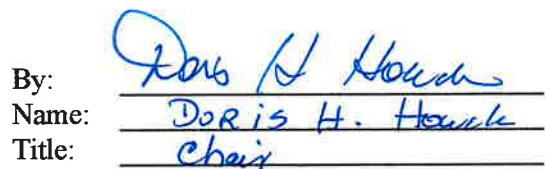 By: Doris H Houck
Name: DORIS H. Houck
Title: Chair